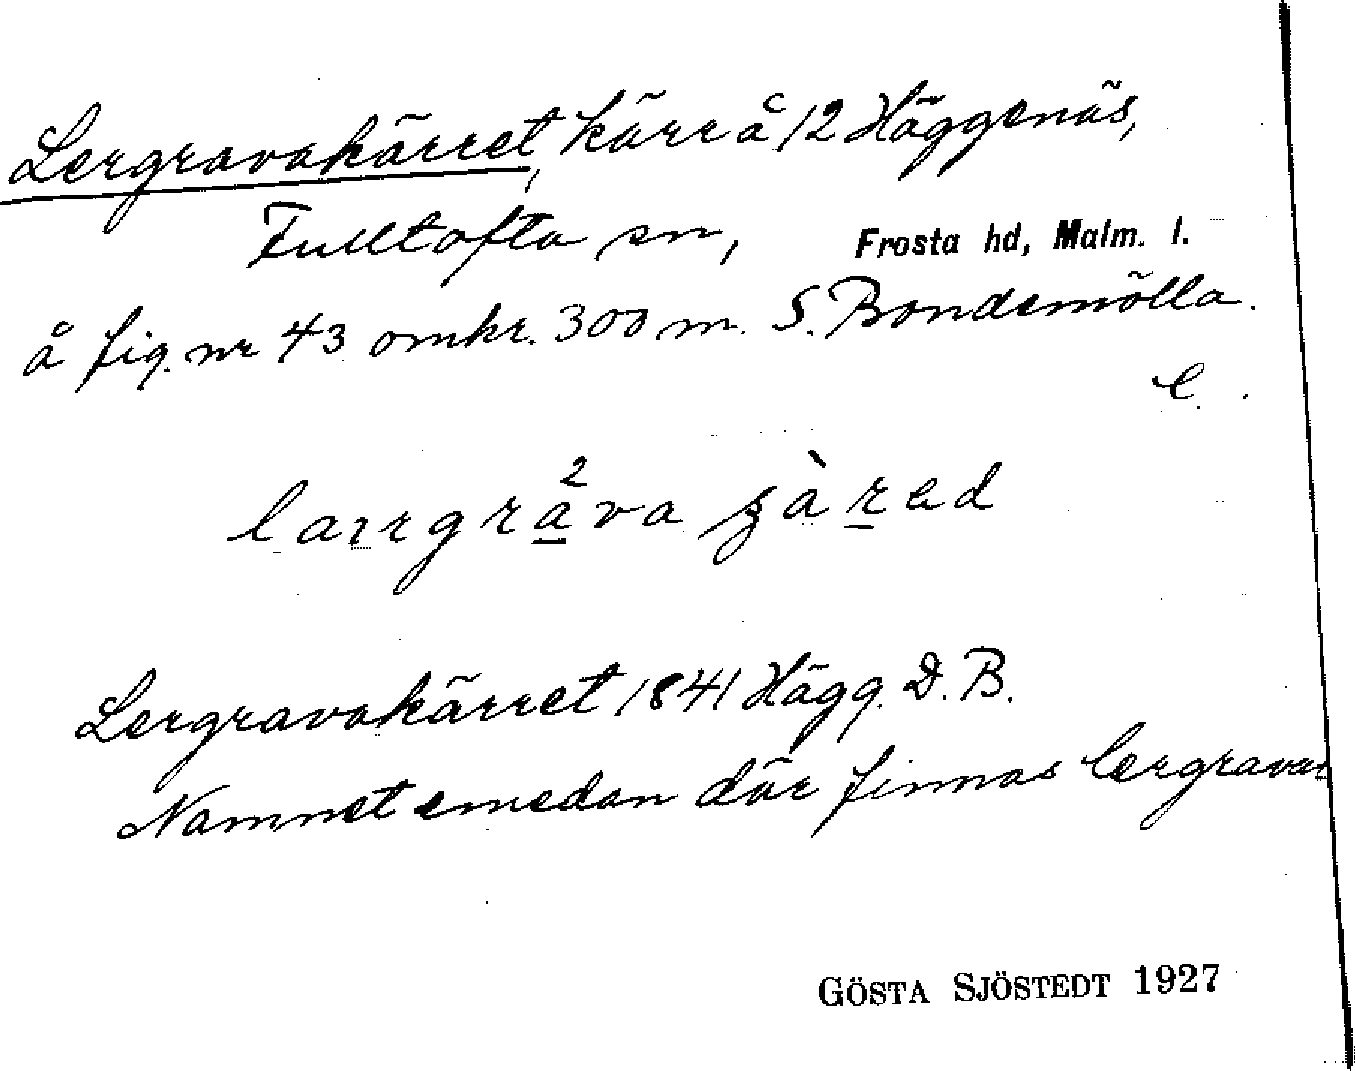 Lergravakärret, kärr å 12 Häggenäs,
Fulltofta sn, Frosta hd, Malm. l.
å fig. nr 43 omkr. 300 m. S. Bondemölla.
l.
Lergravakärret 1841 Hägg. D. B.
Namnet emedan där finnas lergravar
GÖSTA SJÖSTEDT 1927